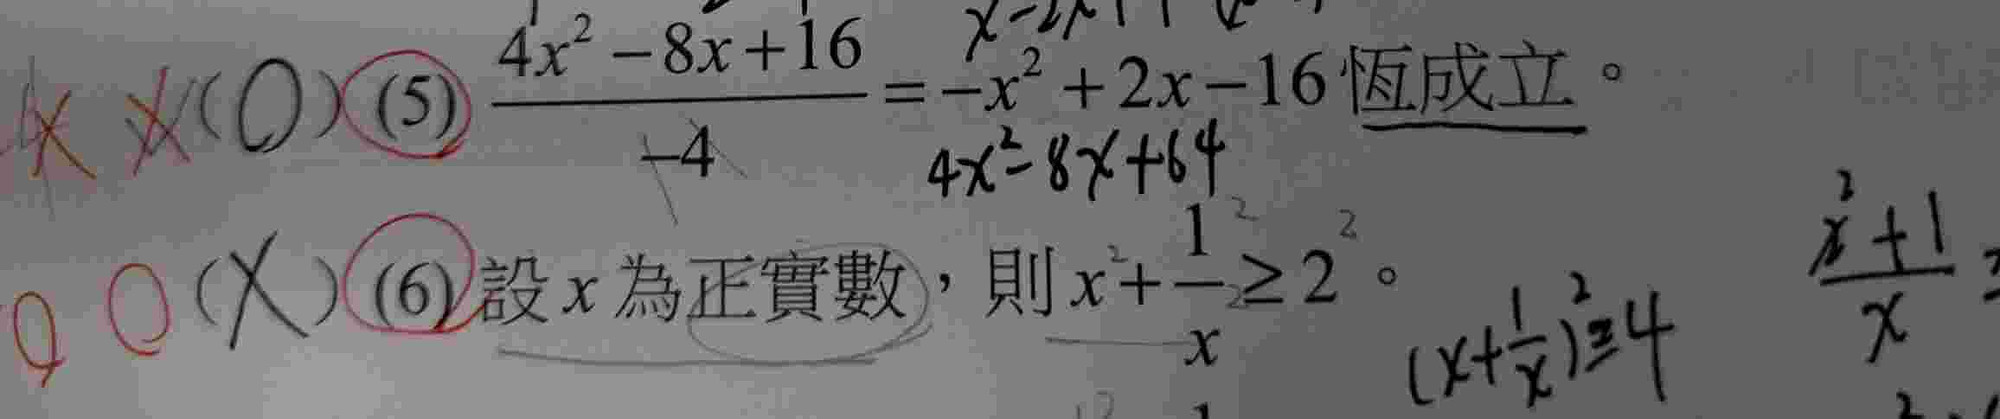 x² - 2x + 1
X X (O) (5) (4x² - 8x + 16)/(-4) = -x² + 2x - 16 恆成立。
4x² - 8x + 64
O O (X) (6) 設 x 為正實數，則 x + 1/x ≥ 2。
(x + 1/x)² ≥ 4
(x² + 1)/x ≥